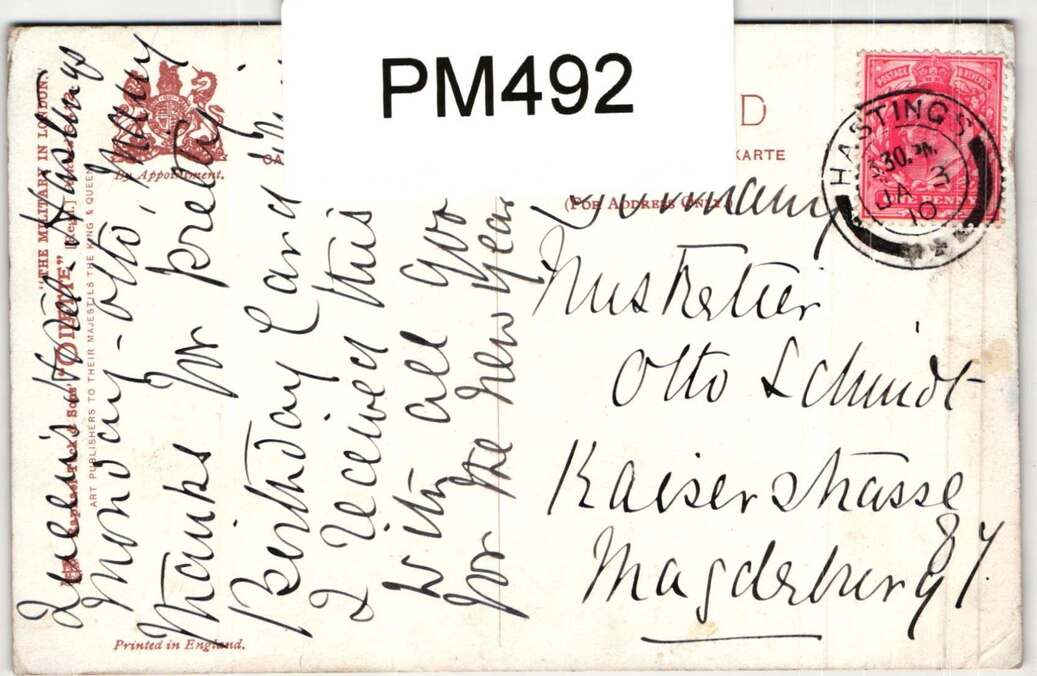 PM492
D
KARTE
(FOR ADDRESS ONLY)
POSTAGE & REVENUE
ONE PENNY
HASTINGS
30.PM
JA 3
10
By Appointment.
"THE MILITARY IN LONDON."
Raphael Tuck & Sons' "OILETTE" [Regd.]
ART PUBLISHERS TO THEIR MAJESTIES THE KING & QUEEN
Printed in England.
Queens Hotel Hastings
Monday - Otto, Many
Thanks for pretty
Birthday Card
I received this
with all goo
for the New Year
Germany
Musketier
Otto Schmidt
Kaiserstrasse
Magdeburg